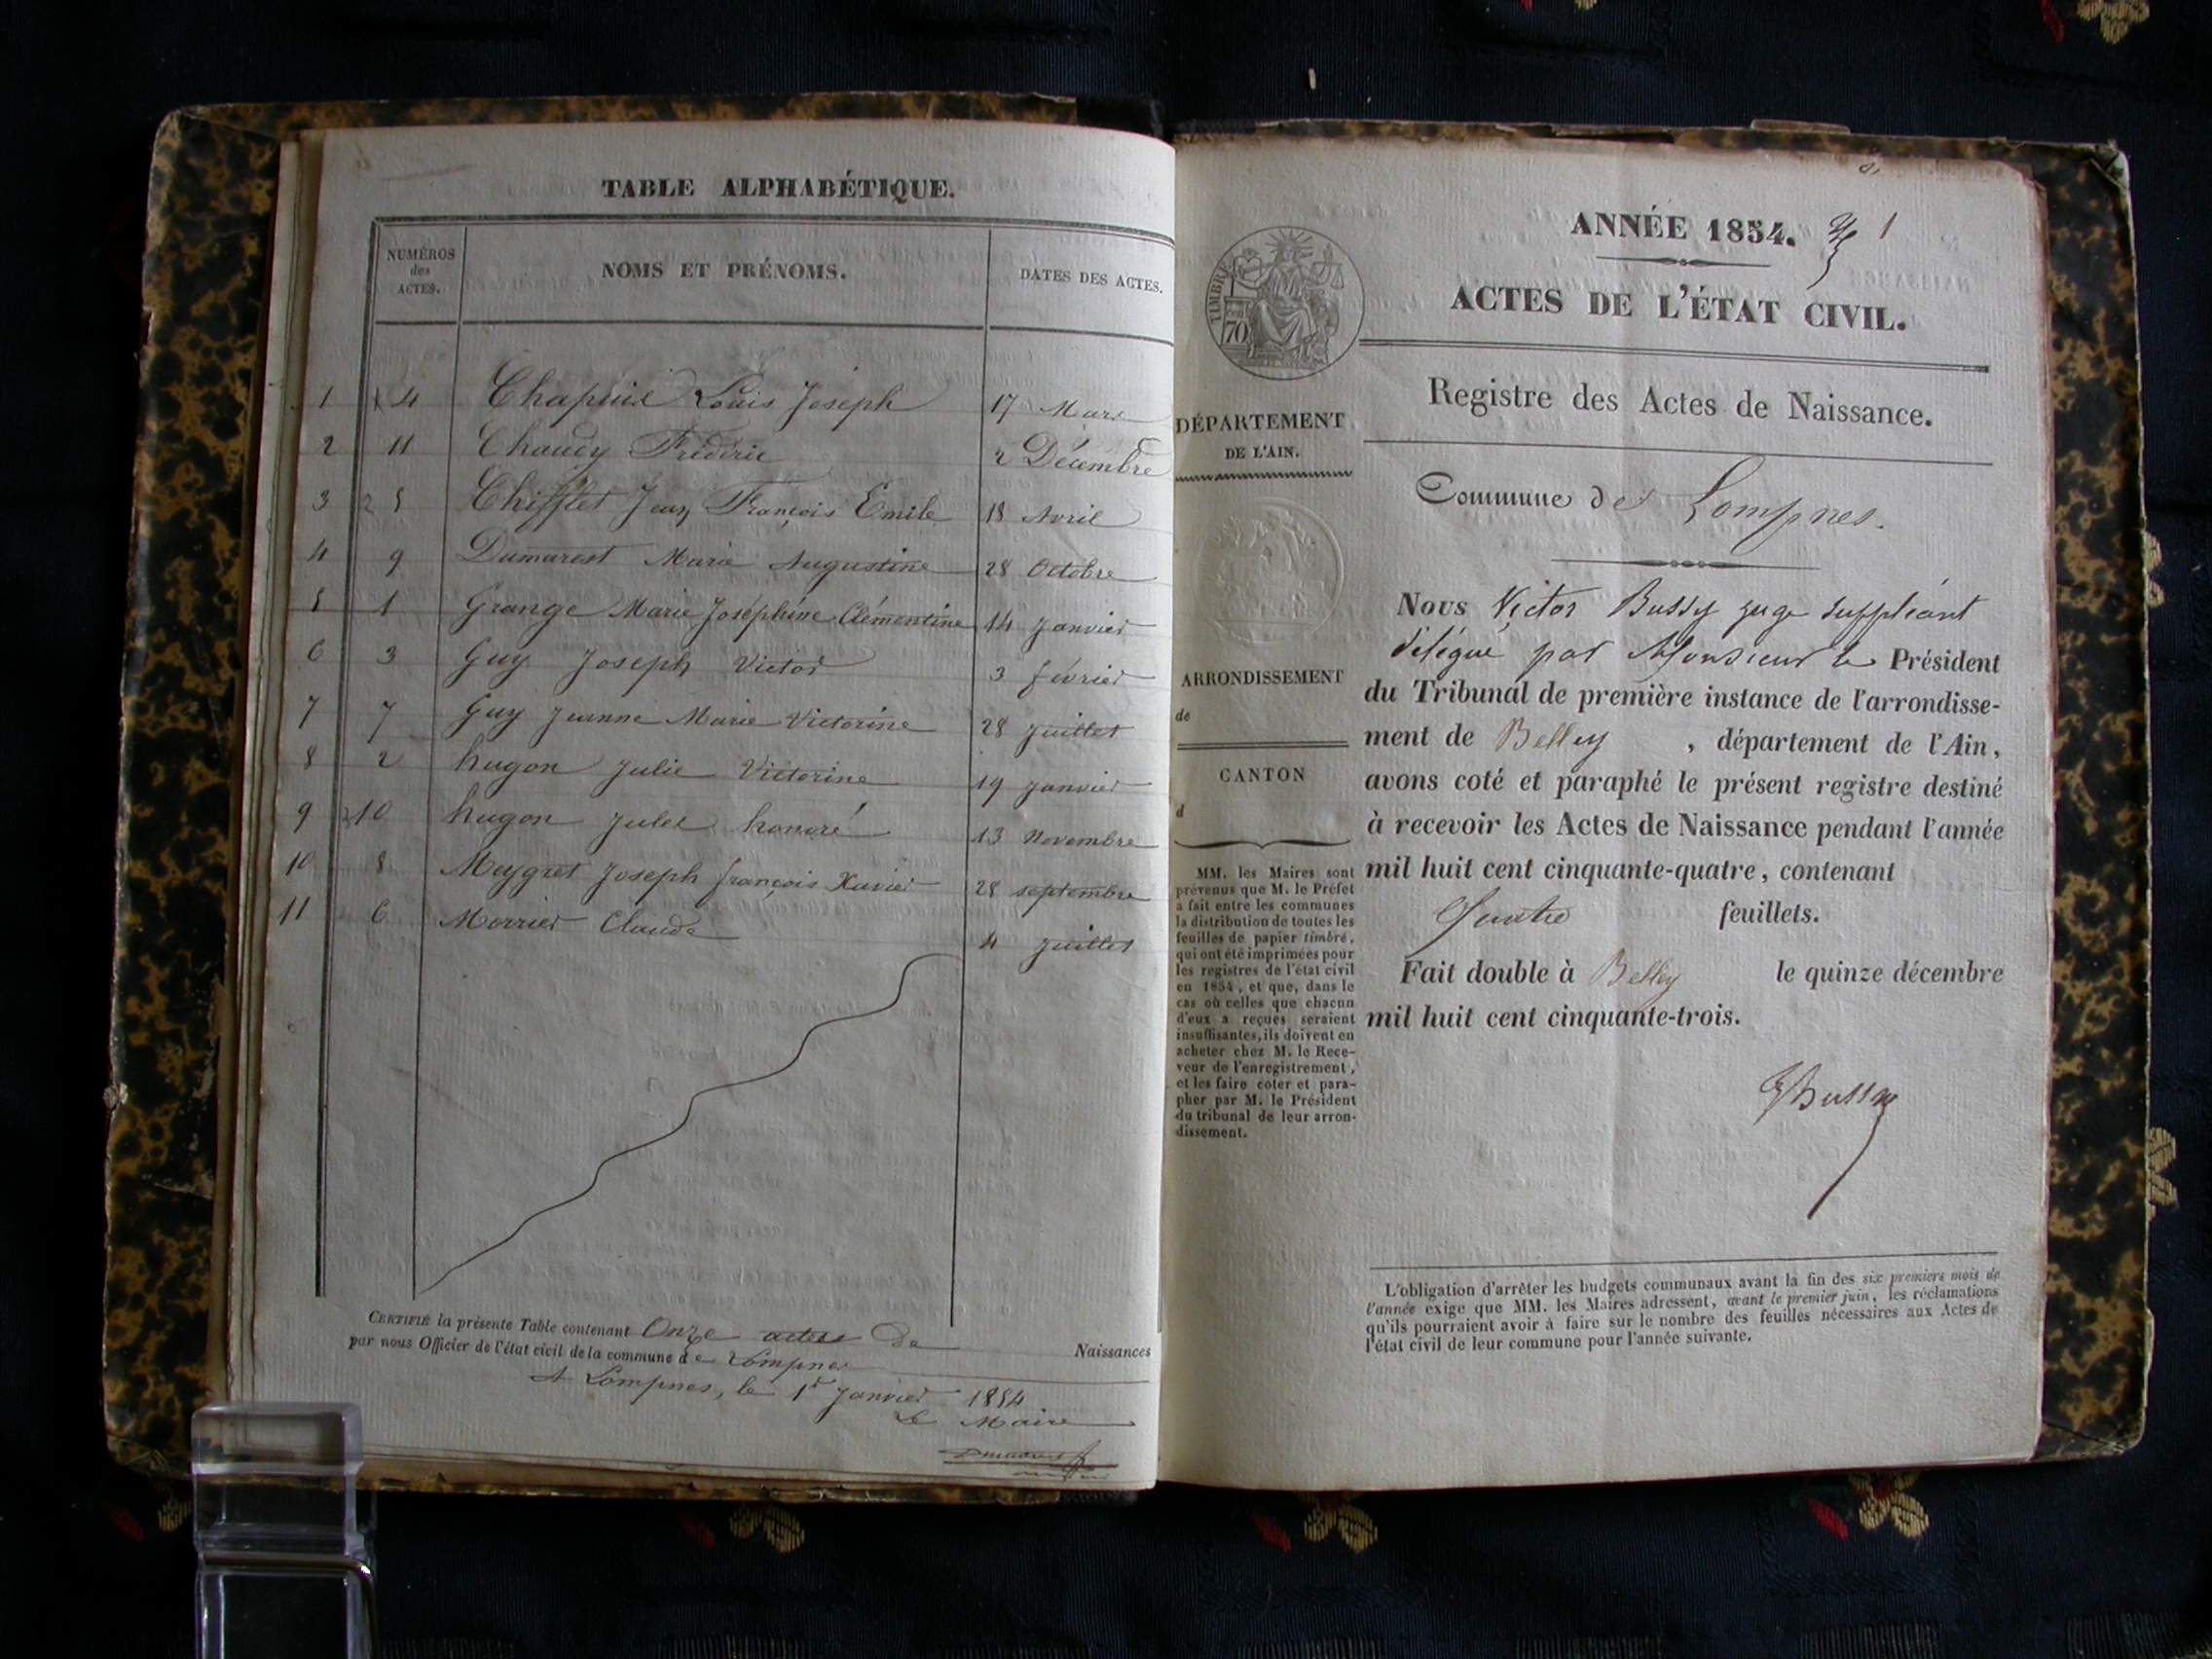 TABLE ALPHABÉTIQUE.
NUMÉROS des ACTES. NOMS ET PRÉNOMS. DATES DES ACTES.
1 4 Chapuis Louis Joseph 17 Mars
2 11 Chaudy Frédéric 2 Décembre
3 5 Chifflet Jean François Emile 18 Avril
4 9 Dumarest Marie Augustine 28 Octobre
5 1 Grange Marie Joséphine Clémentine 14 Janvier
6 3 Guy Joseph Victor 3 février
7 7 Guy Jeanne Marie Victorine 28 Juillet
8 2 hugon Julie Victorine 19 Janvier
9 10 hugon Jules honoré 13 Novembre
10 8 Meygret Joseph françois Xavier 28 septembre
11 6 Morrier Claude 4 Juillet
CERTIFIÉ la présente Table contenant Onze actes de Naissances
par nous Officier de l'état civil de la commune de Lompnes
A Lompnes, le 1r Janvier 1854
Le Maire
ANNÉE 1854. 1
ACTES DE L'ÉTAT CIVIL.
Registre des Actes de Naissance.
TIMBRE
70
DÉPARTEMENT
DE L'AIN.
ARRONDISSEMENT
de
CANTON
d
MM. les Maires sont
prévenus que M. le Préfet
a fait entre les communes
la distribution de toutes les
feuilles de papier timbré,
qui ont été imprimées pour
les registres de l'état civil
en 1854, et que, dans le
cas où celles que chacun
d'eux a reçues seraient
insuffisantes, ils doivent en
acheter chez M. le Rece-
veur de l'enregistrement,
et les faire coter et para-
pher par M. le Président
du tribunal de leur arron-
dissement.
Commune de Lompnes.
Nous Victor Bussy juge suppléant
délégué par Monsieur le Président
du Tribunal de première instance de l'arrondisse-
ment de Belley , département de l'Ain,
avons coté et paraphé le présent registre destiné
à recevoir les Actes de Naissance pendant l'année
mil huit cent cinquante-quatre, contenant
Quatre feuillets.
Fait double à Belley le quinze décembre
mil huit cent cinquante-trois.
VBussy
L'obligation d'arrêter les budgets communaux avant la fin des six premiers mois de
l'année exige que MM. les Maires adressent, avant le premier juin, les réclamations
qu'ils pourraient avoir à faire sur le nombre des feuilles nécessaires aux Actes de
l'état civil de leur commune pour l'année suivante.